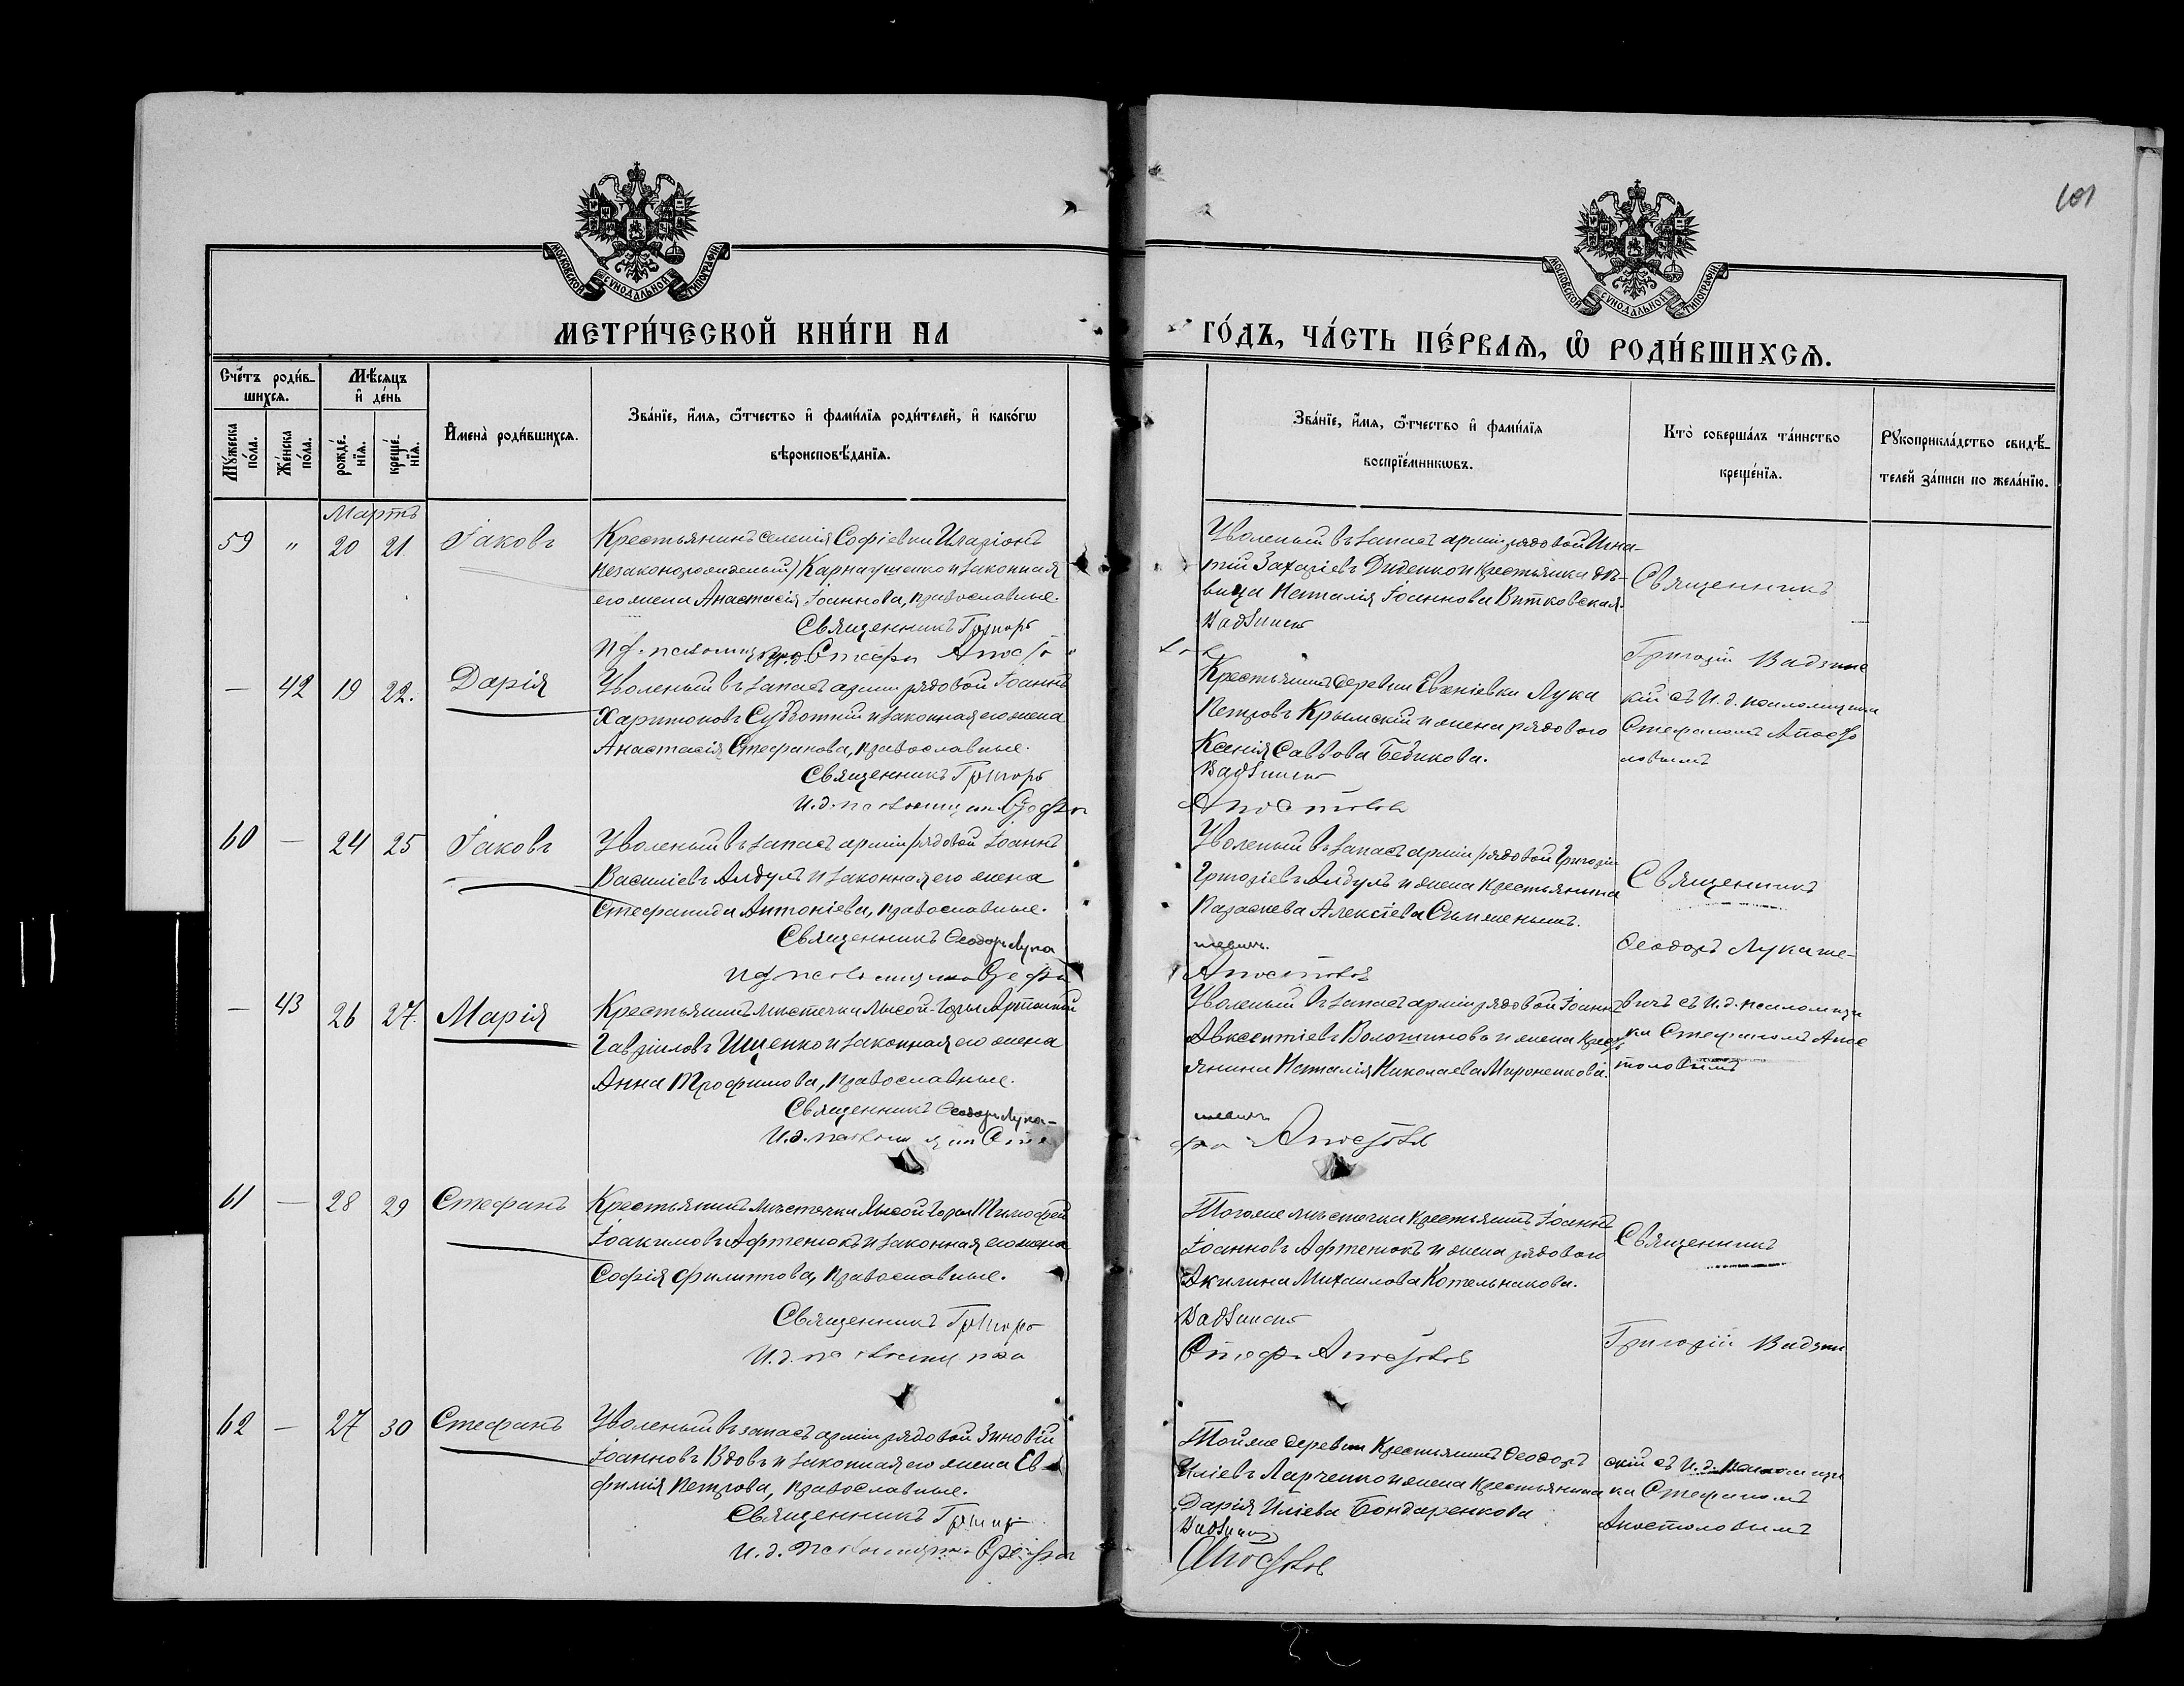 101
МОСКОВСКОЙ СѴНОДАЛЬНОЙ ТИПОГРАФІИ
МОСКОВСКОЙ СѴНОДАЛЬНОЙ ТИПОГРАФІИ
МЕТРИ́ЧЕСКОЙ КНИ́ГИ НА
ГО́ДЪ, ЧА́СТЬ ПЕ́РВАѦ, Ѡ҆ РОДИ́ВШИХСѦ.
Сче́тъ роди́в-
шихсѧ.
Мꙋ́жеска по́ла.
Же́нска по́ла.
Мѣ́сѧцъ
и҆ де́нь
рожде́-нїѧ.
креще́-нїѧ.
И҆мена̀ роди́вшихсѧ.
Зва́нїе, и҆́мѧ, ѻ҆́тчество и҆ фами́лїѧ роди́телей, и҆ како́гѡ
вѣроисповѣ́данїѧ.
Зва́нїе, и҆́мѧ, ѻ҆́тчество и҆ фами́лїѧ
воспрїе́мникѡвъ.
Кто̀ соверша́лъ та́инство
креще́нїѧ.
Рꙋкоприкла́дство свидѣ́-
телей за́писи по жела́нїю.
Мартъ
59 " 20 21 Іаковъ
Крестьянинъ селенія Софіевки Иларіонъ
незаконорожденный) Карнаушенко и законная
его жена Анастасія Іоаннова, православные.
Священникъ Григорій
Уволеный въ запасъ арміи рядовой Игна-
тій Захаріевъ Диденко и крестьянка дѣ-
вица Наталія Іоаннова Витковская.
Вадзинскій
Священникъ
— 42 19 22. Дарія
Уволеный въ запасъ арміи рядовой Іоаннъ
Харитоновъ Субботній и законная его жена
Анастасія Стефанова, православные.
Священникъ Григорій
И.д. псаломщика Стефан
Крестьянинъ деревни Евгеніевки Лука
Петровъ Крымскій и жена рядового
Ксенія Саввова Бебикова.
Вадзинскій
Апостолов
Григорій Вадзинс
кій съ И.д. псаломщика
Стефаномъ Апосто
ловымъ
60 — 24 25 Іаковъ
Уволеный въ запасъ арміи рядовой Іоаннъ
Василіевъ Алдулъ и законная его жена
Стефанида Антоніева, православные.
Священникъ Ѳеодоръ Лука
И.д. псаломщика Стефан
Уволеный въ запасъ арміи рядовой Григорій
Григоріевъ Алдулъ и жена крестьянина
Параскева Алексіева
шевичъ.
Апостолов
Священникъ
Ѳеодоръ Лукаше-
— 43 26 27. Марія
Крестьянинъ мѣстечка Лысой-Горы
Гавріиловъ Ищенко и законная его жена
Анна Трофимова, православные.
Священникъ Ѳеодоръ Лука-
И.д. псаломщика Сте
Уволеный въ запасъ арміи рядовой Іоаннъ
Авксентіевъ Волошиновъ и жена крест
янина Наталія Николаева Мироненкова.
шевичъ
фан Апостолов
вичъ съ И.д. псаломщи
ка Стефаномъ Апос
толовымъ
61 — 28 29 Стефанъ
Крестьянинъ мѣстечка Лысой-Горы Тимофей
Іоакимовъ Афтенюкъ и законная его жена
Софія Филиппова, православные.
Священникъ Григорій
И.д. псаломщика
Тогоже мѣстечка крестьянинъ Іоаннъ
Іоанновъ Афтенюкъ и жена рядового
Акилина Михаилова Котельникова.
Вадзинскій
Стефан Апостолов
Священникъ
Григорій Вадзин
62 — 27 30 Стефанъ
Уволеный въ запасъ арміи рядовой Зиновій
Іоанновъ Вдовъ и законная его жена Ев-
фимія Петрова, православные.
Священникъ Григорій
И.д. псаломщика Стефан
Тойже деревни крестьянинъ Ѳеодоръ
Иліевъ Ларченко и жена крестьянина
Дарія Иліева Бондаренкова
Вадзинскій
Апостолов
скій съ И.д. псаломщи
ка Стефаномъ
Апостоловымъ